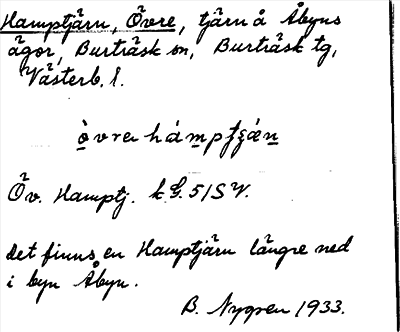 Hamptjärn, Övre, tjärn å Åbyns
ägor, Burträsk sn, Burträsk tg,
Västerb. l.
Öv. Hamptj. k G. 51 SV.
Det finns en Hamptjärn längre ned
i byn Åbyn.
B. Nygren 1933.